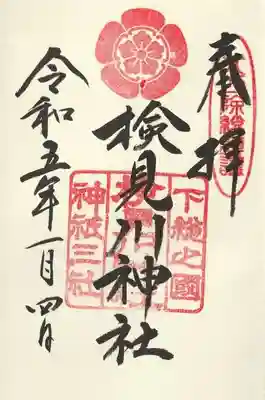 奉拝
下総之國
検見川神社
神祇三社
令和五年一月四日